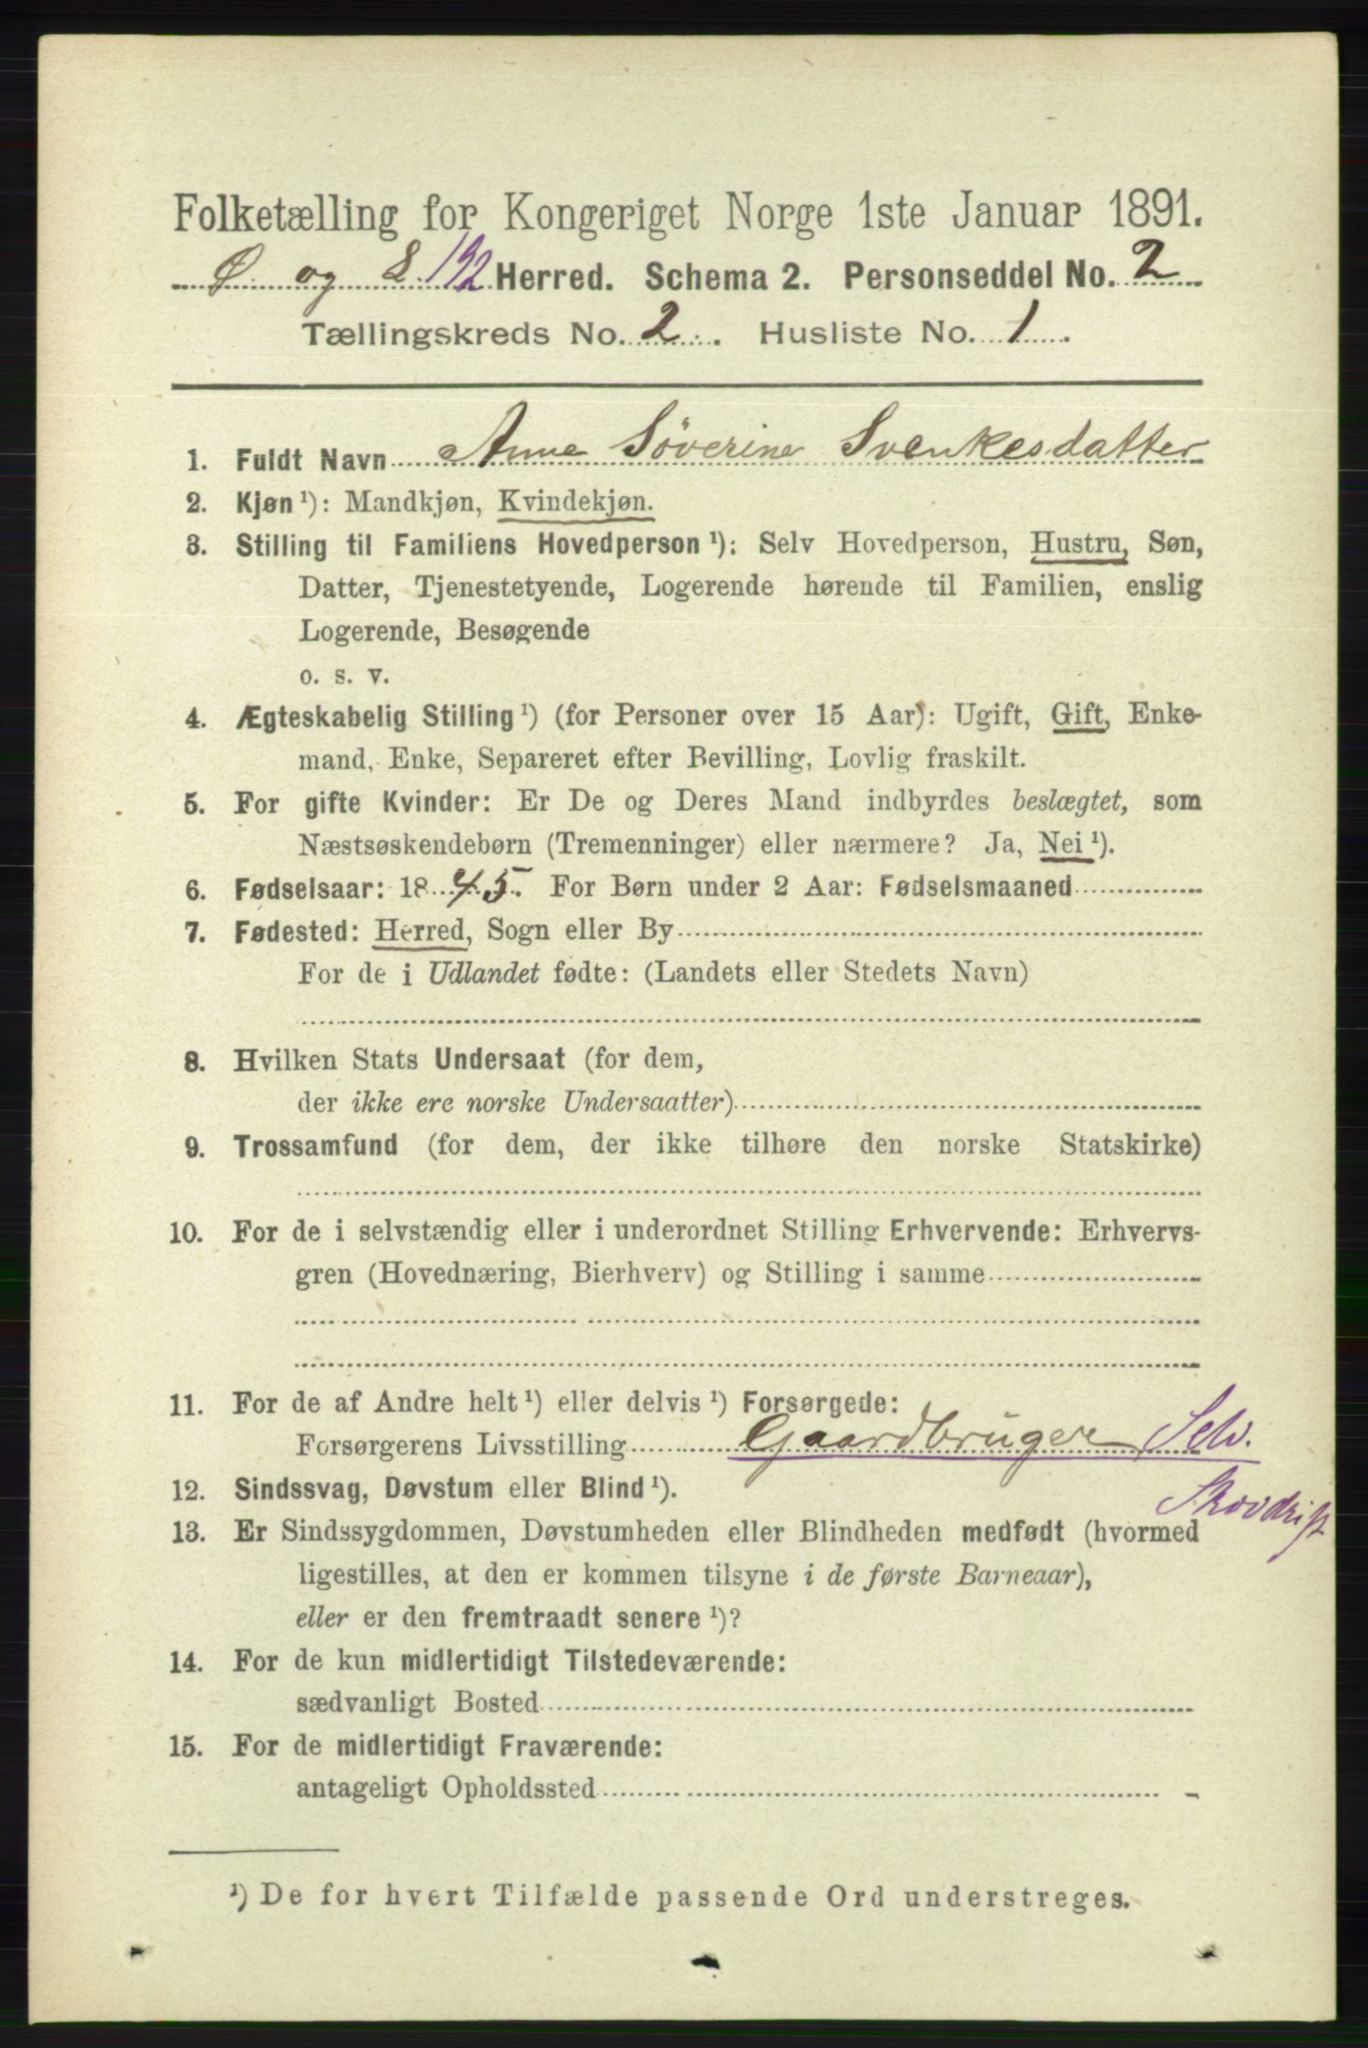 Folketælling for Kongeriget Norge 1ste Januar 1891.
Ø. og S. 192 Herred. Schema 2. Personseddel No. 2
Tællingskreds No. 2. Husliste No. 1.
1. Fuldt Navn Anne Søverine Svenkesdatter
2. Kjøn ¹): Mandkjøn, Kvindekjøn.
3. Stilling til Familiens Hovedperson ¹): Selv Hovedperson, Hustru, Søn,
Datter, Tjenestetyende, Logerende hørende til Familien, enslig
Logerende, Besøgende
o. s. v.
4. Ægteskabelig Stilling ¹) (for Personer over 15 Aar): Ugift, Gift, Enke-
mand, Enke, Separeret efter Bevilling, Lovlig fraskilt.
5. For gifte Kvinder: Er De og Deres Mand indbyrdes beslægtet, som
Næstsøskendebørn (Tremenninger) eller nærmere? Ja, Nei ¹).
6. Fødselsaar: 1845. For Børn under 2 Aar: Fødselsmaaned
7. Fødested: Herred, Sogn eller By
For de i Udlandet fødte: (Landets eller Stedets Navn)
8. Hvilken Stats Undersaat (for dem,
der ikke ere norske Undersaatter)
9. Trossamfund (for dem, der ikke tilhøre den norske Statskirke)
10. For de i selvstændig eller i underordnet Stilling Erhvervende: Erhvervs-
gren (Hovednæring, Bierhverv) og Stilling i samme
11. For de af Andre helt ¹) eller delvis ¹) Forsørgede:
Forsørgerens Livsstilling Gaardbruger Selv.
Skovdrift
12. Sindssvag, Døvstum eller Blind ¹).
13. Er Sindssygdommen, Døvstumheden eller Blindheden medfødt (hvormed
ligestilles, at den er kommen tilsyne i de første Barneaar),
eller er den fremtraadt senere ¹)?
14. For de kun midlertidigt Tilstedeværende:
sædvanligt Bosted
15. For de midlertidigt Fraværende:
antageligt Opholdssted
¹) De for hvert Tilfælde passende Ord understreges.